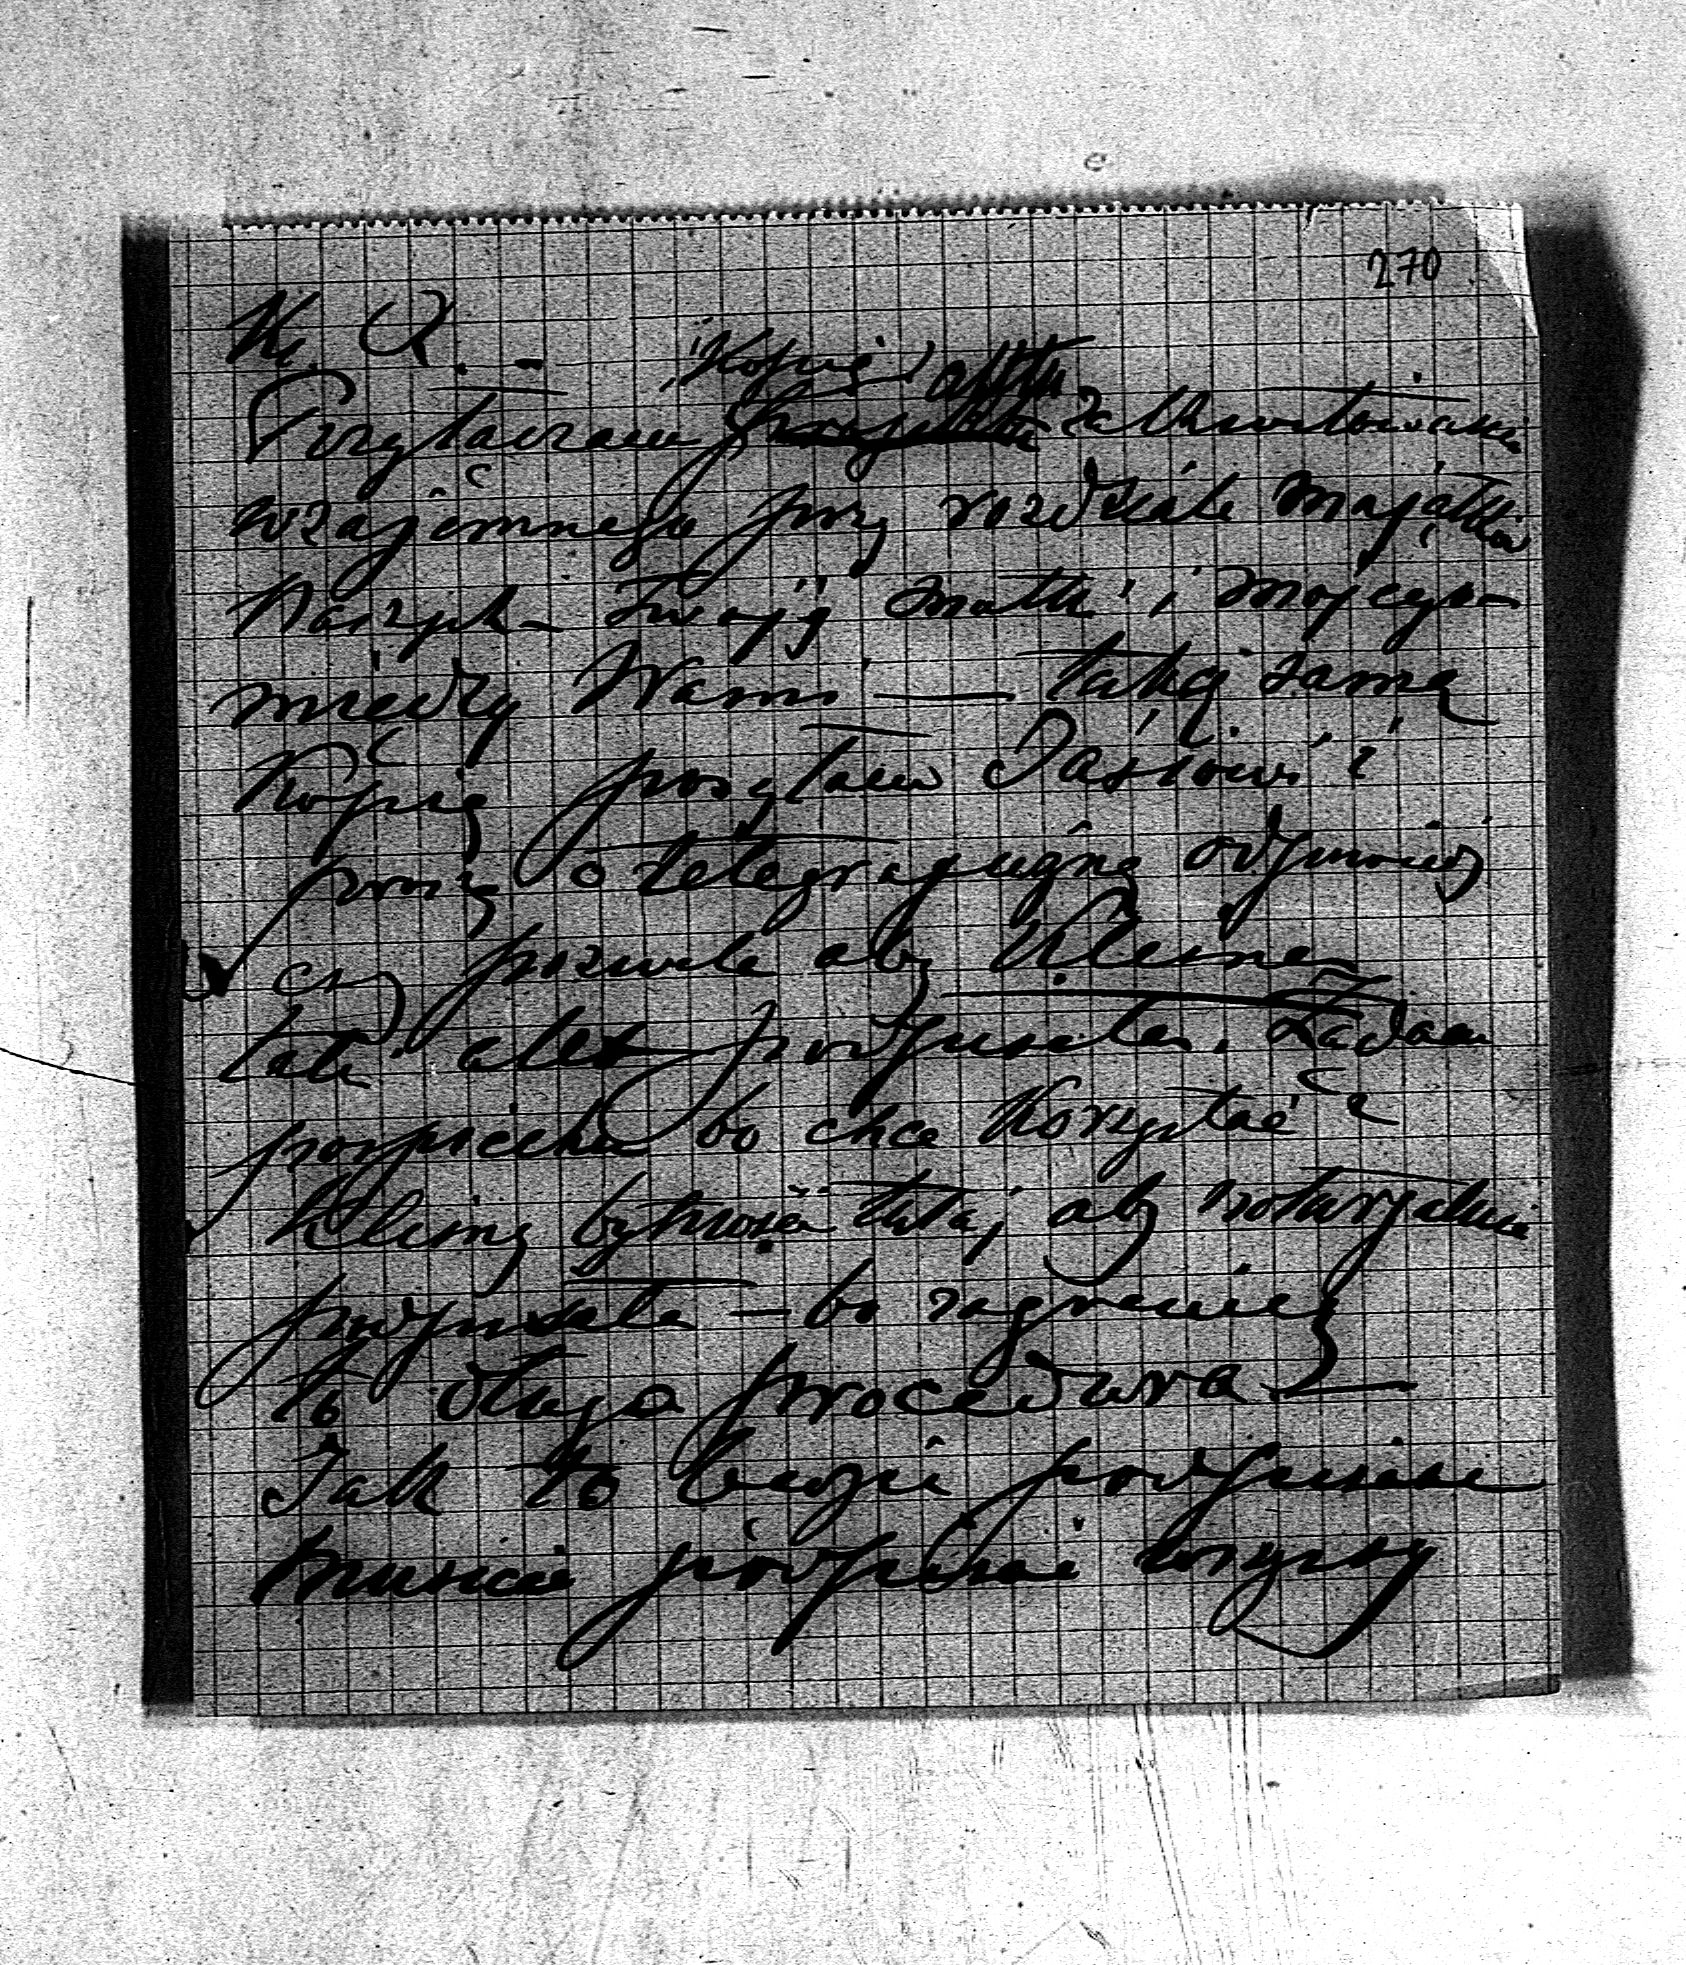 270
K. A. -
Kopię aktu
Przytaczam projektu zakwitowania
wzajemnego przy rozdziale majątków
Naszych - Twojéj matki i mojego -
między Wami — taką samą
Kopię posyłam Jasiowi i
proszę o telegraficzną odpowiedź
czy pozwala aby Klima
taki akt podpisała. Żądam
pospiechu bo chcę korzystać z
Klimy bytności tutaj aby notaryalnie
podpisała — bo zagranicą
to długa procedura —
Jak to będzie podpisane
musicie podpisać wszyscy